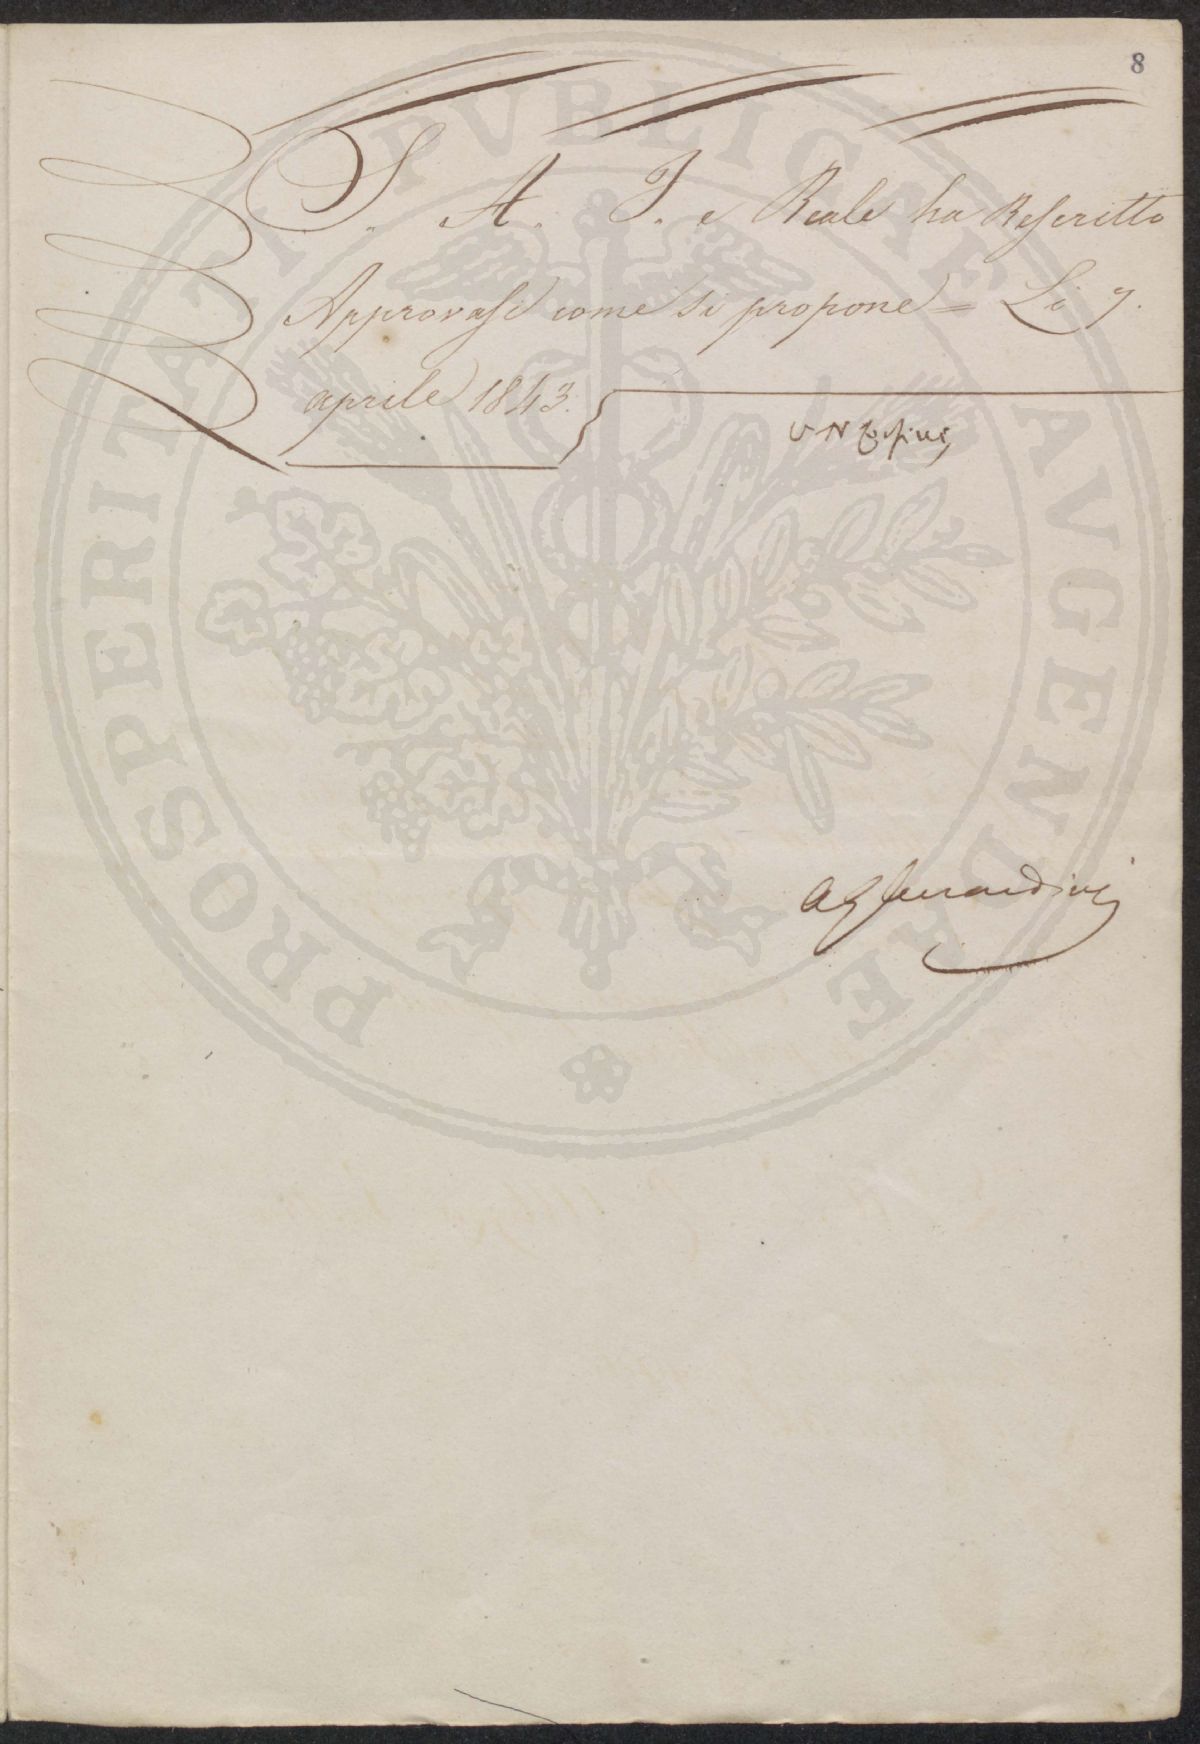 8
S. A. I. e Reale ha Rescritto
Approvasi come si propone = Li 7.
aprile 1843.
PROSPERITATI PVBLICAE AVGENDAE